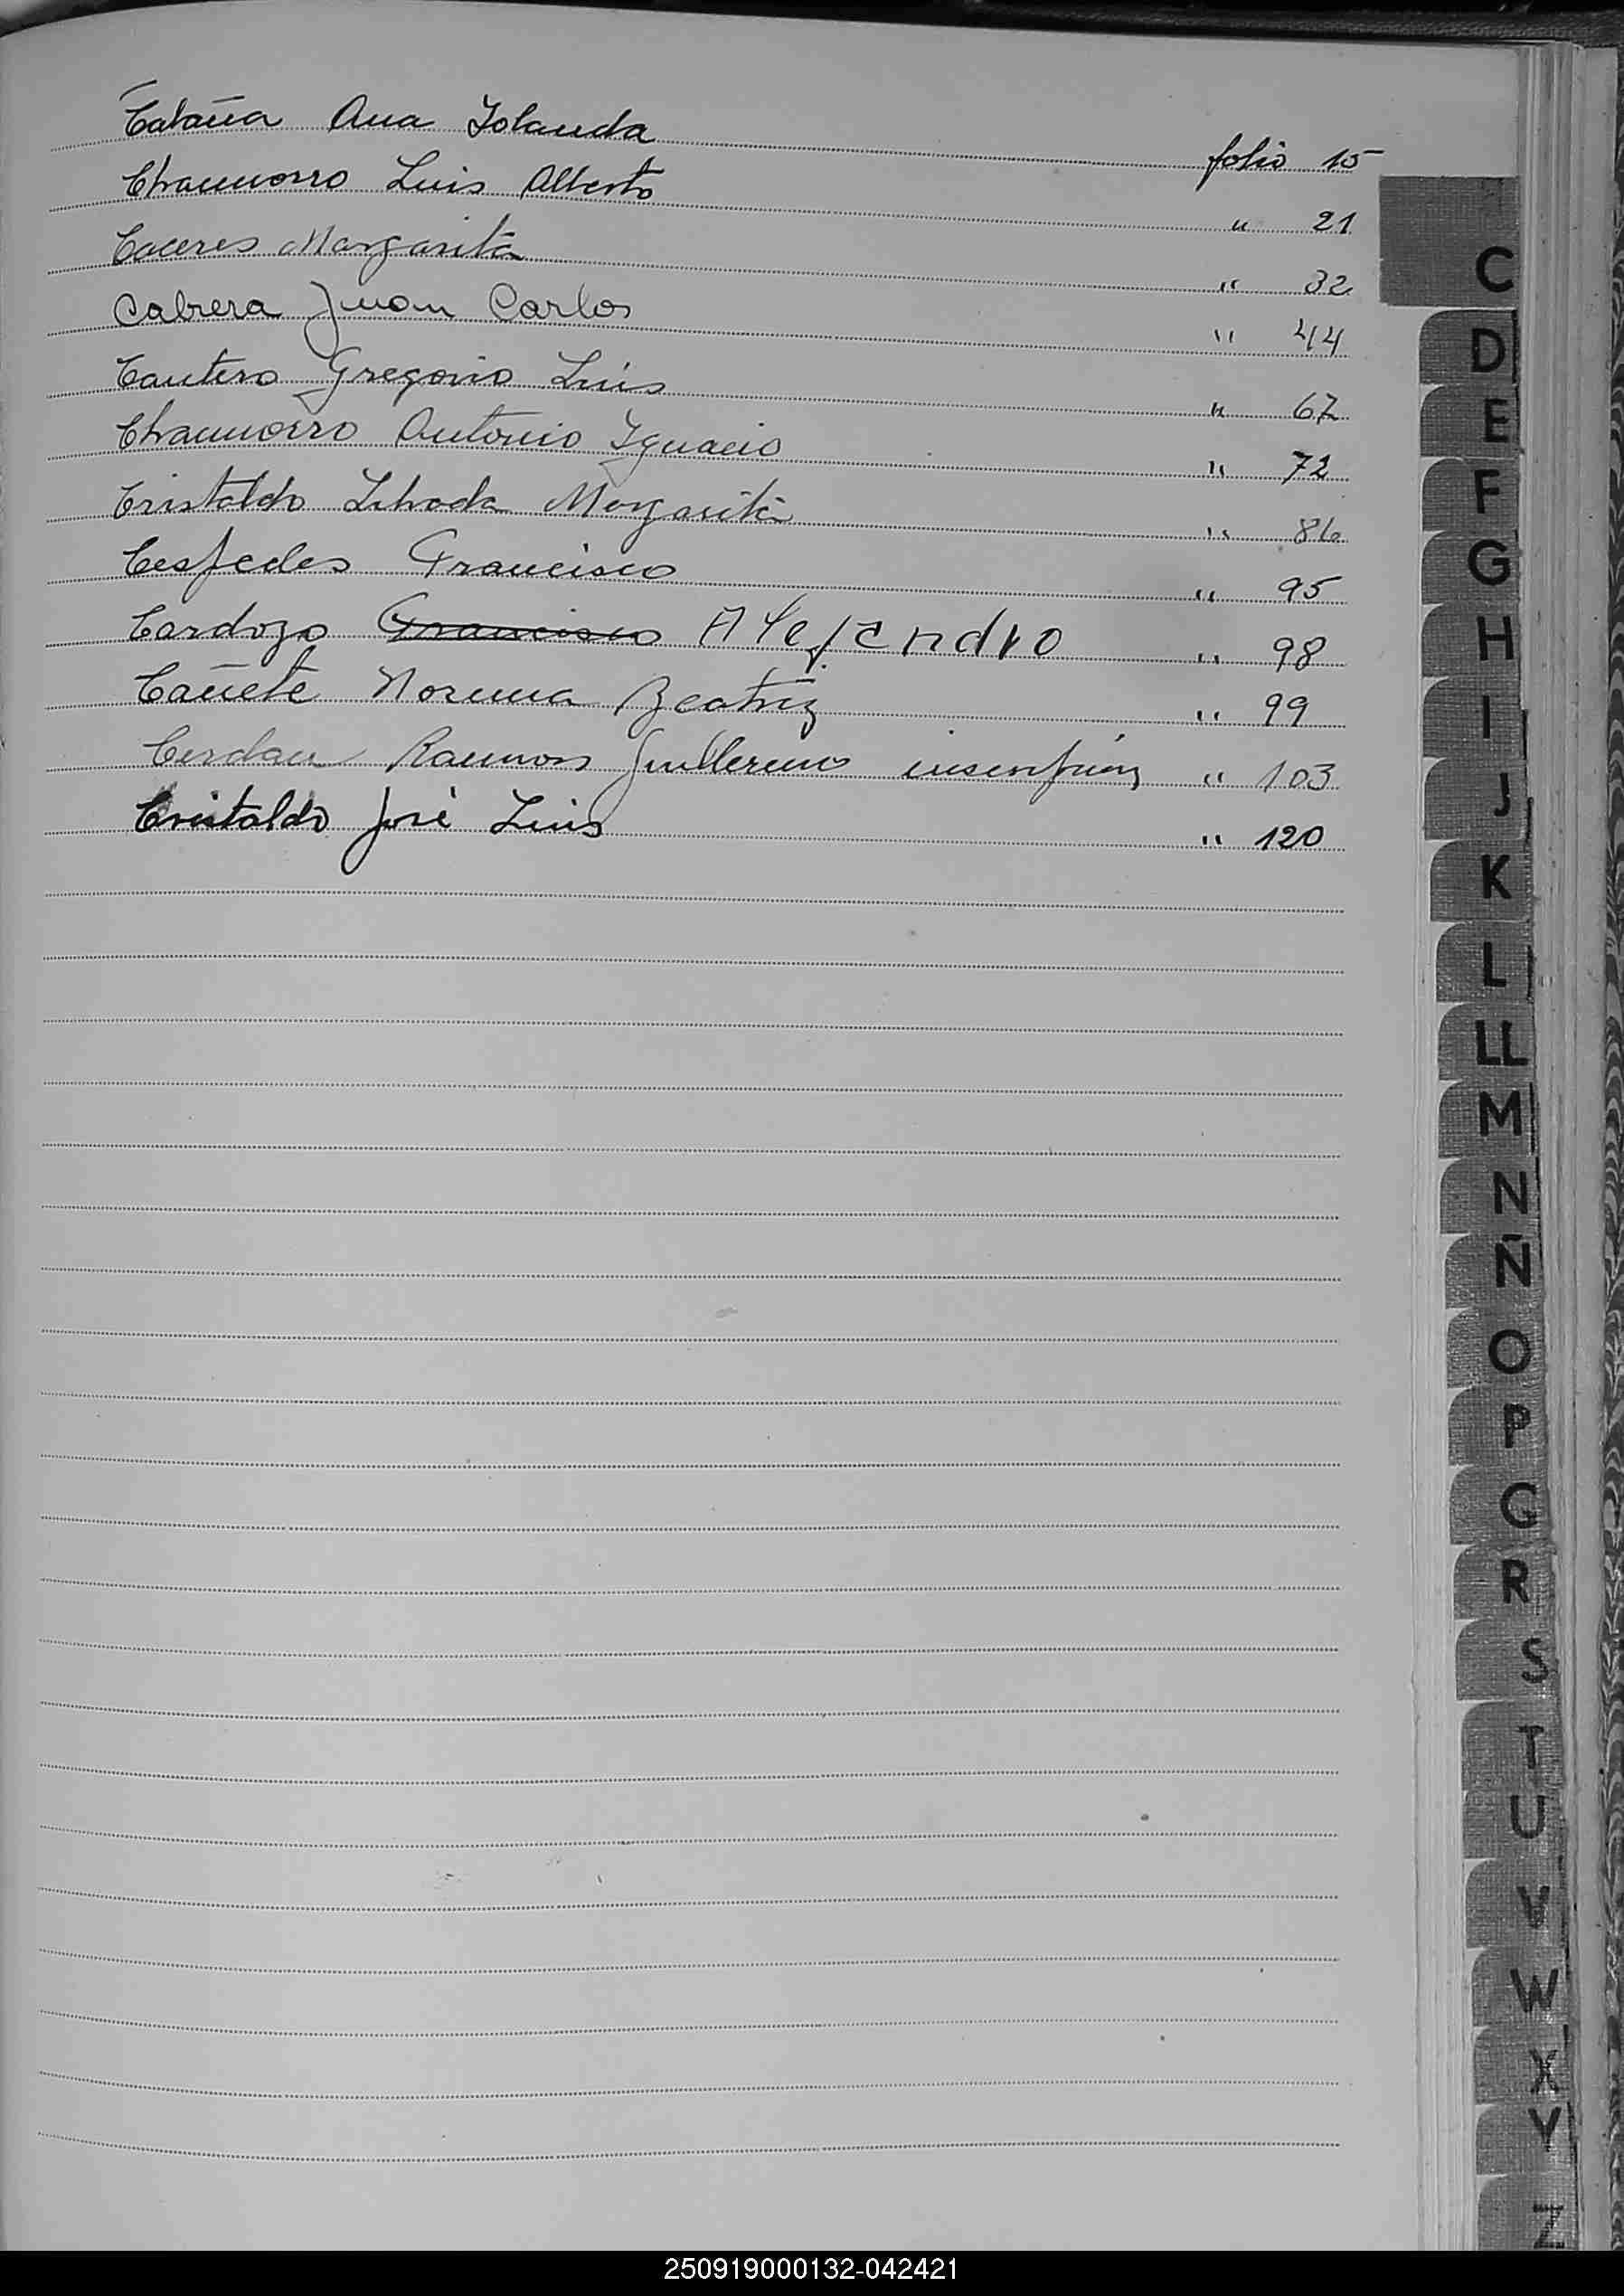 Cabaña Ana Iolanda folio 15
Chamorro Luis Alberto " 21
Caceres Margarita " 32
Cabrera Juan Carlos " 44
Cantero Gregorio Luis " 67
Chamorro Antonio Ignacio " 72
Cristaldo Librada Margarita " 86
Cespedes Francisco " 95
Cardozo Francisco Alejandro " 98
Cañete Norma Beatriz " 99
Cerdan Ramon Guillermo inscripción " 103
Cristaldo José Luis " 120
C
D
E
F
G
H
I
J
K
L
LL
M
N
Ñ
O
P
Q
R
S
T
U
V
W
X
Y
Z
250919000132-042421